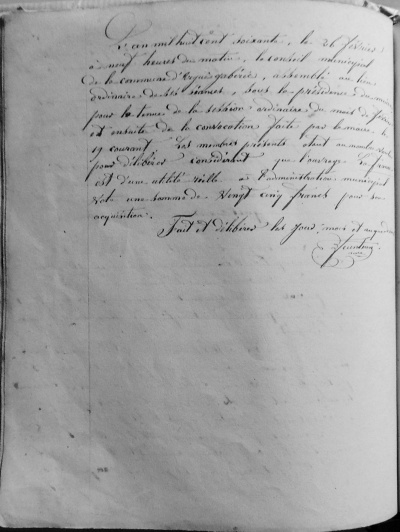 L'an mil huit cent soixante, le 26 février
à neuf heures du matin, le conseil municipal
de la commune d'Ergué gabéric, assemblé au lieu
ordinaire de ses séances, sous la présidence du maire
pour la tenue de la session ordinaire du mois de février
et ensuite de la convocation faite par le maire le
19 courant. Les membres présents étant au nombre
pour délibérer considérant que l'ouvrage
est d'une utilité réelle à l'administration municipale
Vote une somme de Vingt cinq francs pour son
acquisition.
Fait et délibéré les jour, mois et an que